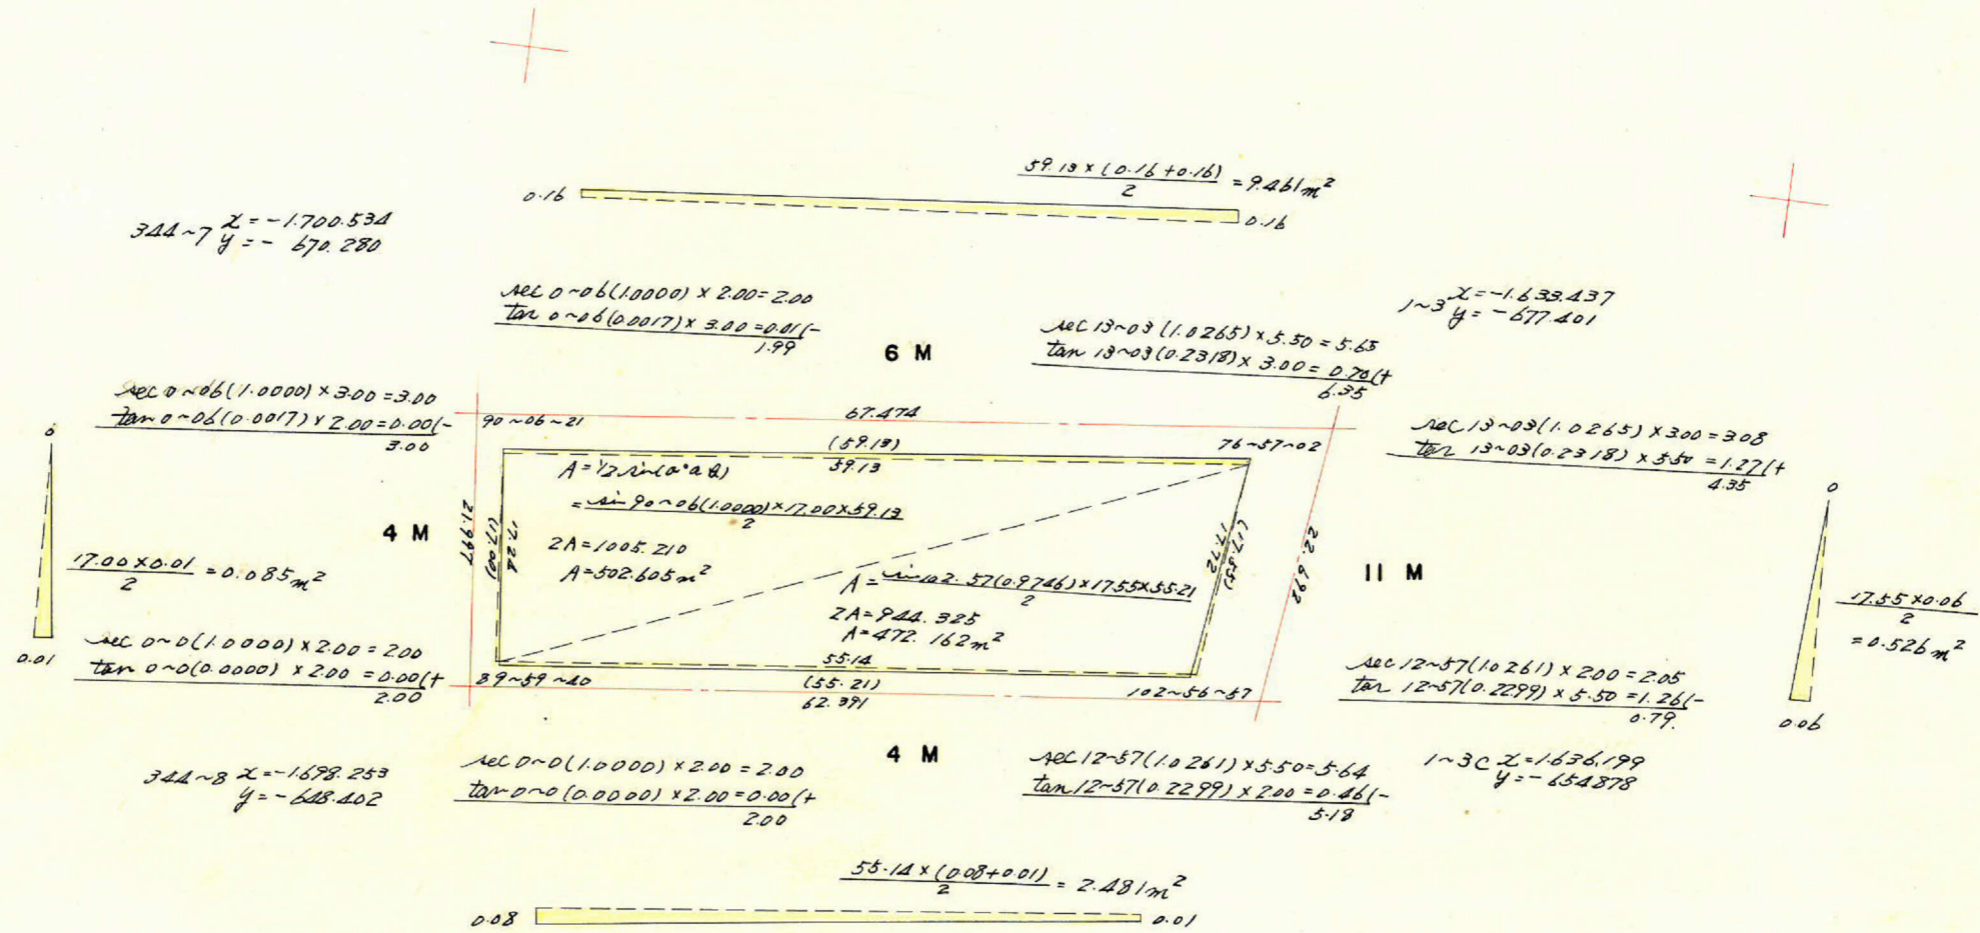 59.13 x (0.16 +0.16)
2
= 9.461m²
0.16
0.16
344~7
x = -1.700.534
y = - 670.280
sec 0~06(1.0000) x 2.00=2.00
tan 0~06(0.0017) x 3.00=0.01(-
1.99
6 M
sec 13~03(1.0265) x 5.50 = 5.65
tan 13~03(0.2318) x 3.00 = 0.70(+
6.35
1~3
x = -1.633.437
y = -677.401
sec 0~06(1.0000) x 3.00 = 3.00
tan 0~06(0.0017) x 2.00 = 0.00(-
3.00
90~06~21
67.474
(59.13)
59.13
76~57~02
sec 13~03(1.0265) x 3.00 = 3.08
tan 13~03(0.2318) x 5.50 = 1.27(+
4.35
0
4 M
21.997
(17.00)
17.24
= sin 90~06(1.0000) x 17.00 x 59.13
2
2A=1005.210
A=502.605m²
A = sin 102.57(0.9746) x 17.55 x 55.21
2
2A=944.325
A=472.162m²
17.72
(17.55)
22.692
11 M
0
17.00 x 0.01
2
= 0.085m²
17.55 x 0.06
2
= 0.526m²
0.01
sec 0~0(1.0000) x 2.00 = 2.00
tan 0~0(0.0000) x 2.00 = 0.00(+
2.00
89~59~40
55.14
(55.21)
62.391
102~56~57
sec 12~57(1.0261) x 2.00 = 2.05
tan 12~57(0.2299) x 5.50 = 1.26(-
0.79.
0.06
344~8
x = -1.698.253
y = -648.402
sec 0~0(1.0000) x 2.00 = 2.00
tan 0~0(0.0000) x 2.00 = 0.00(+
2.00
4 M
sec 12~57(1.0261) x 5.50 = 5.64
tan 12~57(0.2299) x 2.00 = 0.46(-
5.18
1~3C
x = 1.636.199
y = -654878
55.14 x (0.08+0.01)
2
= 2.481m²
0.08
0.01